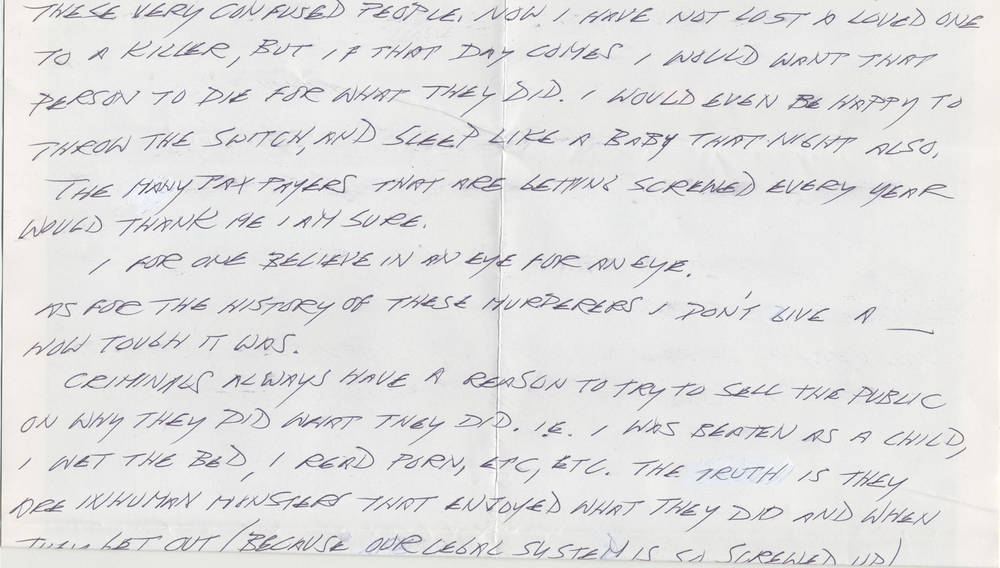 THESE VERY CONFUSED PEOPLE. NOW I HAVE NOT LOST A LOVED ONE
TO A KILLER, BUT IF THAT DAY COMES I WOULD WANT THAT
PERSON TO DIE FOR WHAT THEY DID. I WOULD EVEN BE HAPPY TO
THROW THE SWITCH, AND SLEEP LIKE A BABY THAT NIGHT ALSO.
THE MANY TAX PAYERS THAT ARE GETTING SCREWED EVERY YEAR
WOULD THANK ME I AM SURE.
I FOR ONE BELIEVE IN AN EYE FOR AN EYE.
AS FOR THE HISTORY OF THESE MURDERERS I DON'T GIVE A __
HOW TOUGH IT WAS.
CRIMINALS ALWAYS HAVE A REASON TO TRY TO SELL THE PUBLIC
ON WHY THEY DID WHAT THEY DID. I.E. I WAS BEATEN AS A CHILD,
I WET THE BED, I READ PORN, ETC, ETC. THE TRUTH IS THEY
ARE INHUMAN MONSTERS THAT ENJOYED WHAT THEY DID AND WHEN
THEY GET OUT (BECAUSE OUR LEGAL SYSTEM IS SO SCREWED UP)